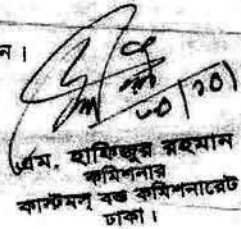 ন।
এম. হাফিজুর রহমান
কমিশনার
কাস্টমস্ বন্ড কমিশনারেট
ঢাকা।